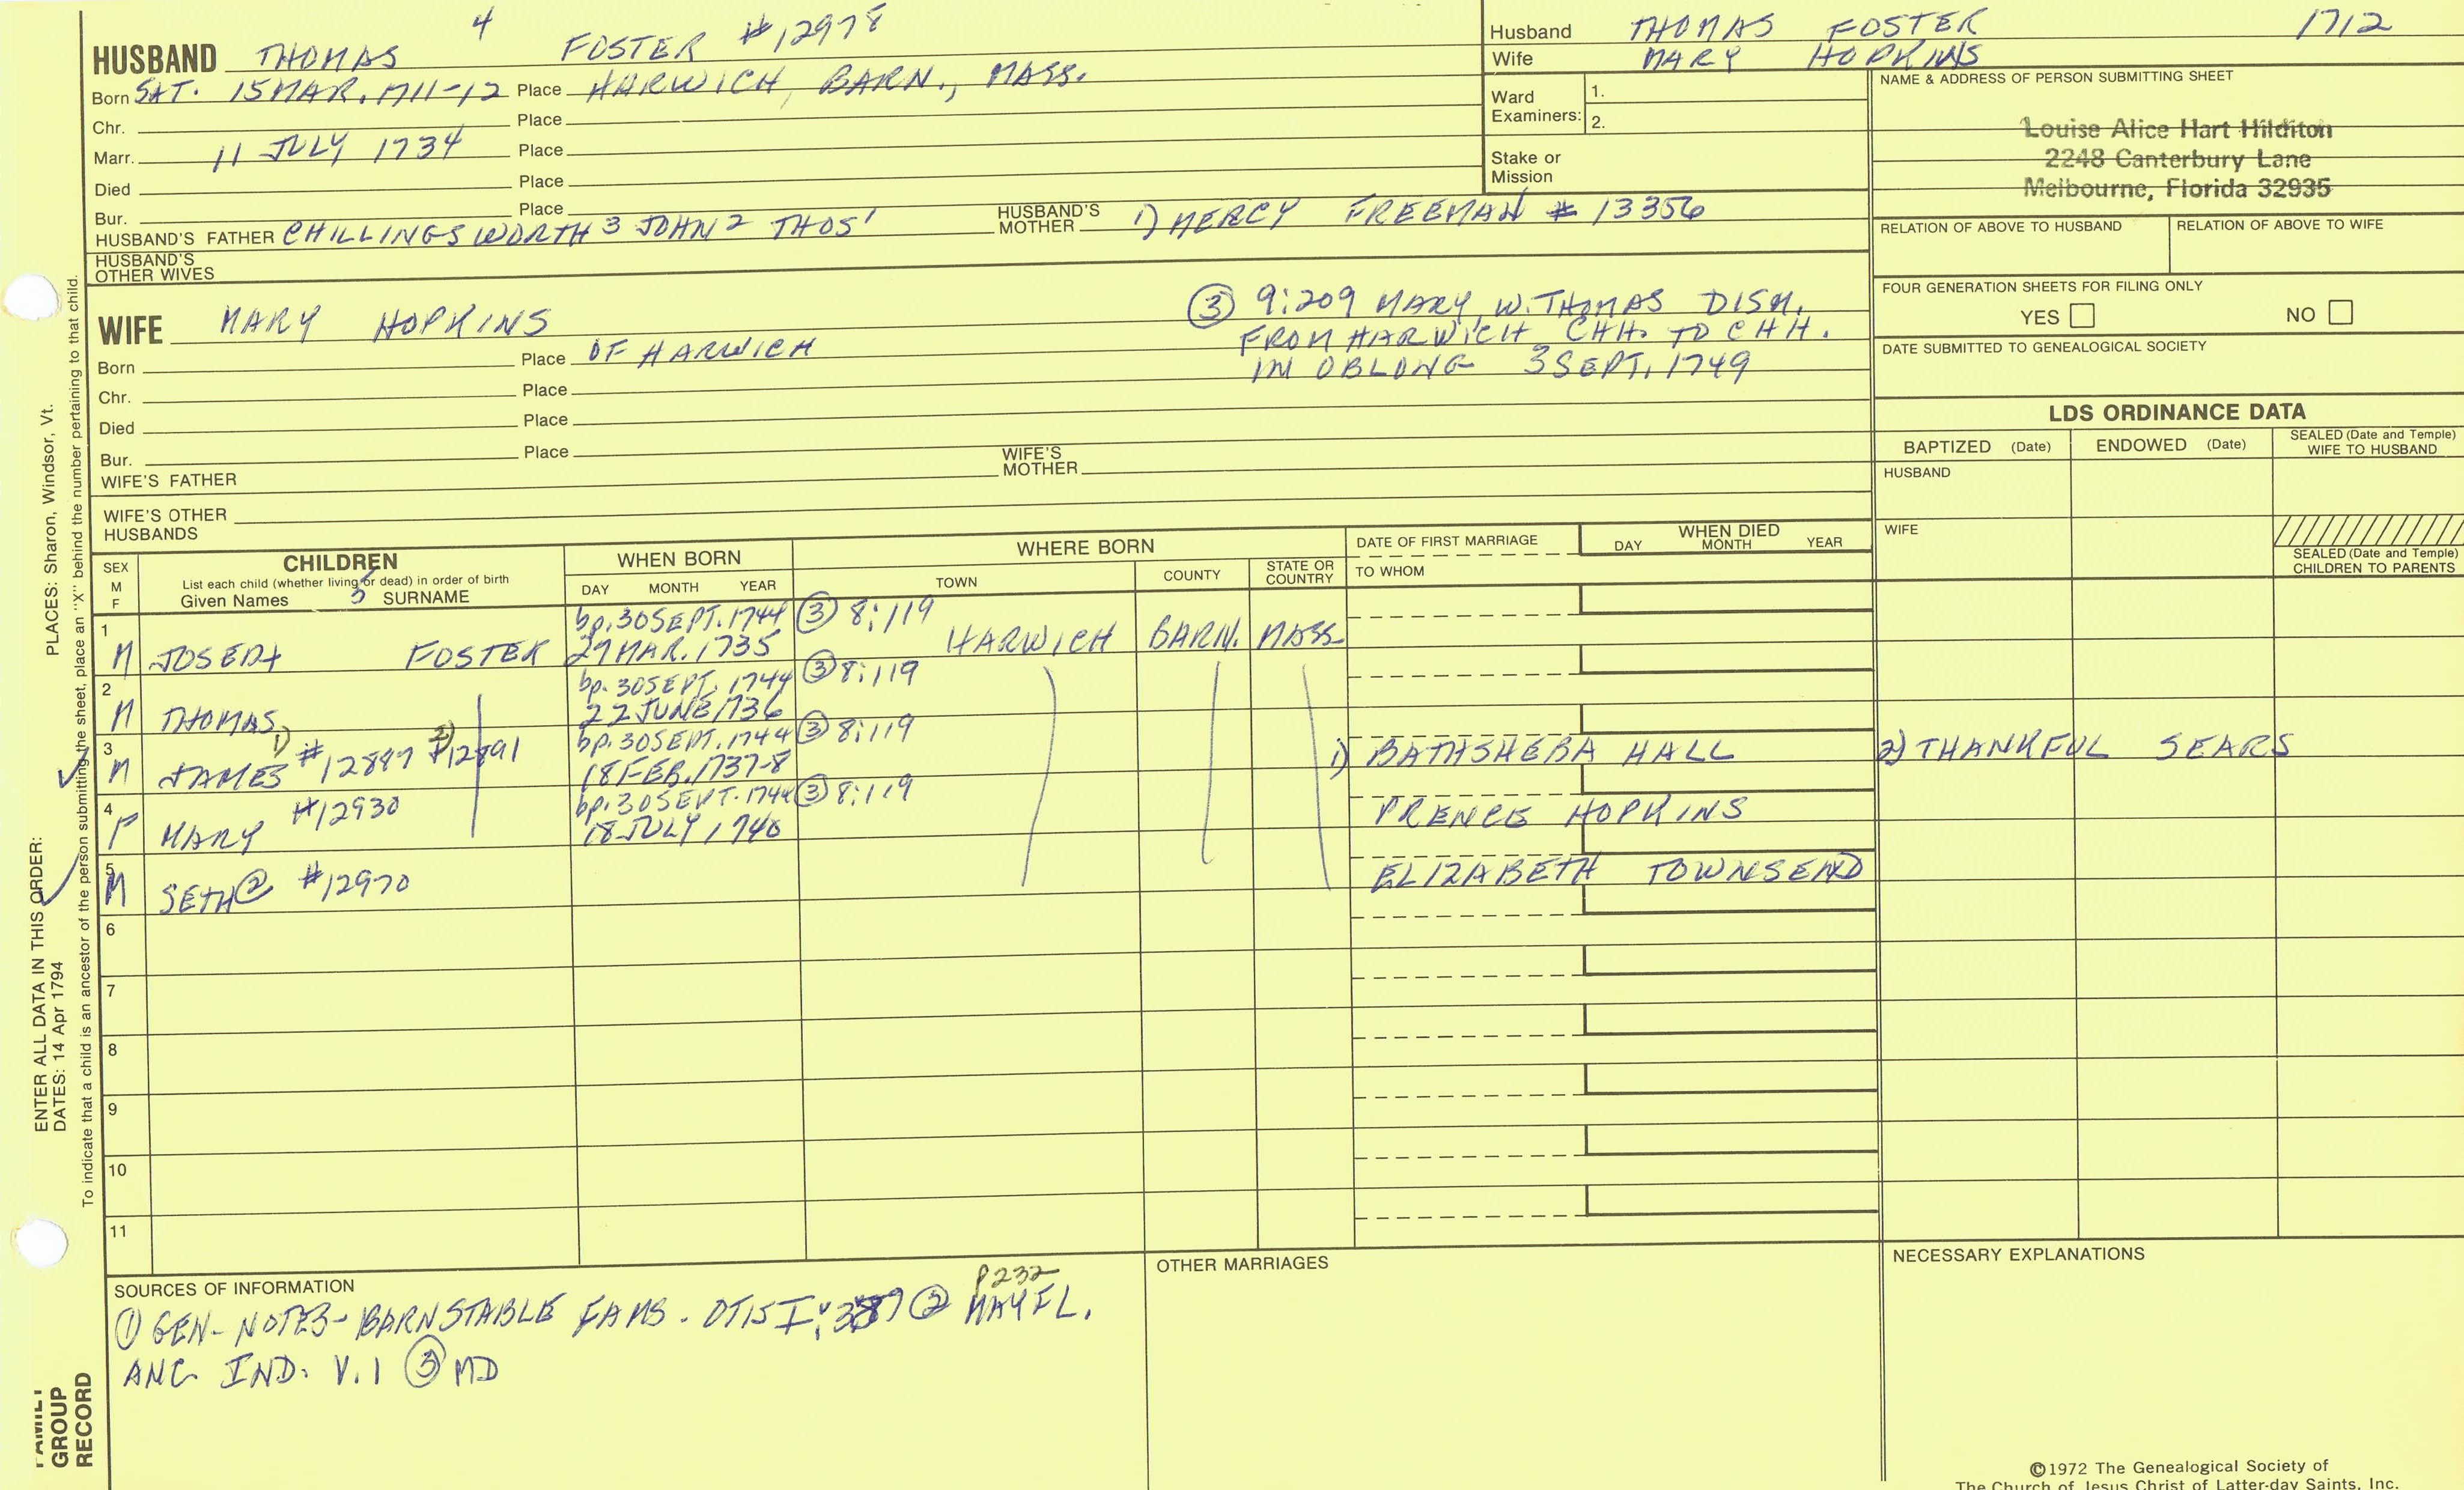 HUSBAND THOMAS 4 FOSTER #12978
Born SAT. 15 MAR. 1711-12 Place HARWICH, BARN., MASS.
Chr. Place
Marr. 11 JULY 1734 Place
Died Place
Bur. Place
HUSBAND'S FATHER CHILLINGSWORTH 3 JOHN 2 THOS' HUSBAND'S MOTHER 1) MERCY FREEMAN # 13356
HUSBAND'S OTHER WIVES
Husband THOMAS FOSTER 1712
Wife MARY HOPKINS
Ward Examiners: 1.
2.
Stake or Mission
NAME & ADDRESS OF PERSON SUBMITTING SHEET
Louise Alice Hart Hilditon
2248 Canterbury Lane
Melbourne, Florida 32935
RELATION OF ABOVE TO HUSBAND RELATION OF ABOVE TO WIFE
FOUR GENERATION SHEETS FOR FILING ONLY
YES NO
DATE SUBMITTED TO GENEALOGICAL SOCIETY
WIFE MARY HOPKINS
Born Place OF HARWICH
Chr. Place
Died Place
Bur. Place
WIFE'S FATHER WIFE'S MOTHER
WIFE'S OTHER HUSBANDS
③ 9:209 MARY, W. THOMAS DISM.
FROM HARWICH CHH. TO CHH.
IN OBLONG 3 SEPT. 1749
LDS ORDINANCE DATA
BAPTIZED (Date) ENDOWED (Date) SEALED (Date and Temple) WIFE TO HUSBAND
HUSBAND
WIFE
SEALED (Date and Temple) CHILDREN TO PARENTS
SEX M F
CHILDREN
List each child (whether living or dead) in order of birth
Given Names 5 SURNAME
WHEN BORN
DAY MONTH YEAR
WHERE BORN
TOWN COUNTY STATE OR COUNTRY
DATE OF FIRST MARRIAGE
TO WHOM
WHEN DIED
DAY MONTH YEAR
1 bp. 30 SEPT. 1744 ③ 8:119
M JOSEPH FOSTER 27 MAR. 1735 HARWICH BARN. MASS.
2 bp. 30 SEPT. 1744 ③ 8:119
M THOMAS 22 JUNE 1736
3 bp. 30 SEPT. 1744 ③ 8:119
M JAMES 1) #12897 2) #12891 18 FEB. 1737-8 1) BATHSHEBA HALL 2) THANKFUL SEARS
4 bp. 30 SEPT. 1744 ③ 8:119
F MARY #12930 18 JULY 1740 PRENCE HOPKINS
5
M SETH ② #12970 ELIZABETH TOWNSEND
6
7
8
9
10
11
SOURCES OF INFORMATION
① GEN- NOTES- BARNSTABLE FAMS. OTIS I: ② P232 MAYFL.
ANC. IND. V. 1 ③ MD
OTHER MARRIAGES
NECESSARY EXPLANATIONS
©1972 The Genealogical Society of
The Church of Jesus Christ of Latter-day Saints, Inc.
ENTER ALL DATA IN THIS ORDER:
DATES: 14 Apr 1794
PLACES: Sharon, Windsor, Vt.
To indicate that a child is an ancestor of the person submitting the sheet, place an "X" behind the number pertaining to that child.
FAMILY
GROUP
RECORD